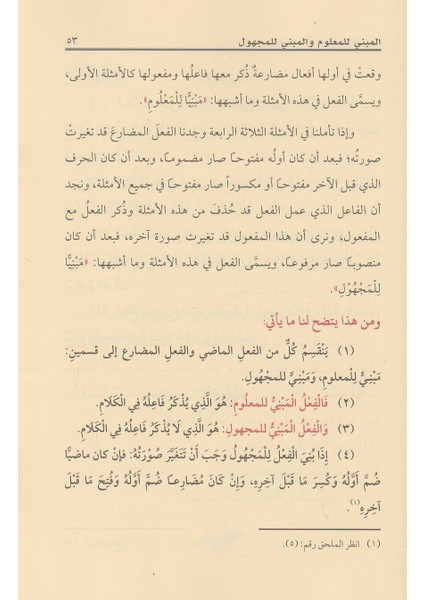 المبني للمعلوم والمبني للمجهول ٥٣
وقعتْ في أولها أفعال مضارعةٌ ذُكر معها فاعلُها ومفعولها كالأمثلة الأولى،
ويسمَّى الفعل في هذه الأمثلة وما أشبهها: «مَبْنِيًّا لِلْمَعْلُومِ».
وإذا تأملنا في الأمثلة الثلاثة الرابعة وجدنا الفعلَ المضارعَ قد تغيرتْ
صورتُه؛ فبعد أن كان أولُه مفتوحًا صار مضمومًا، وبعد أن كان الحرف
الذي قبل الآخر مفتوحًا أو مكسوراً صار مفتوحًا في جميع الأمثلة، ونجد
أن الفاعل الذي عمل الفعل قد حُذفَ من هذه الأمثلة وذُكر الفعلُ مع
المفعول، ونرى أن هذا المفعول قد تغيرت صورة آخره، فبعد أن كان
منصوبًا صار مرفوعًا، ويسمَّى الفعل في هذه الأمثلة وما أشبهها: «مَبْنِيًّا
لِلْمَجْهُوْلِ».
ومن هذا يتضح لنا ما يأتي:
(١) يَنْقَسِمُ كُلٌّ من الفعل الماضي والفعل المضارع إلى قسمين:
مَبْنِيٍّ لِلْمعلومِ، وَمَبْنِيٍّ للمجْهُولِ.
(٢) فَالْفِعْلُ الْمَبْنِيُّ للمعلُومِ: هُوَ الَّذِي يُذْكَرُ فَاعِلُهُ فِي الْكَلَامِ.
(٣) وَالْفِعْلُ الْمَبْنِيُّ للمجهولِ: هُوَ الَّذِي لَا يُذْكَرُ فَاعِلُهُ فِي الْكَلَامِ.
(٤) إِذَا بُنِيَ الْفِعْلُ لِلْمَجْهُولِ وَجَبَ أَنْ تَتَغَيَّرَ صُوْرَتُهُ: فإن كان ماضيًا
ضُمَّ أَوَّلُهُ وَكُسِرَ مَا قَبْلَ آخِرِهِ، وَإِنْ كَانَ مُضَارِعًا ضُمَّ أَوَّلُهُ وَفُتِحَ مَا قَبْلَ
آخِرِهِ(١).
(١) انظر الملحق رقم: (٥).